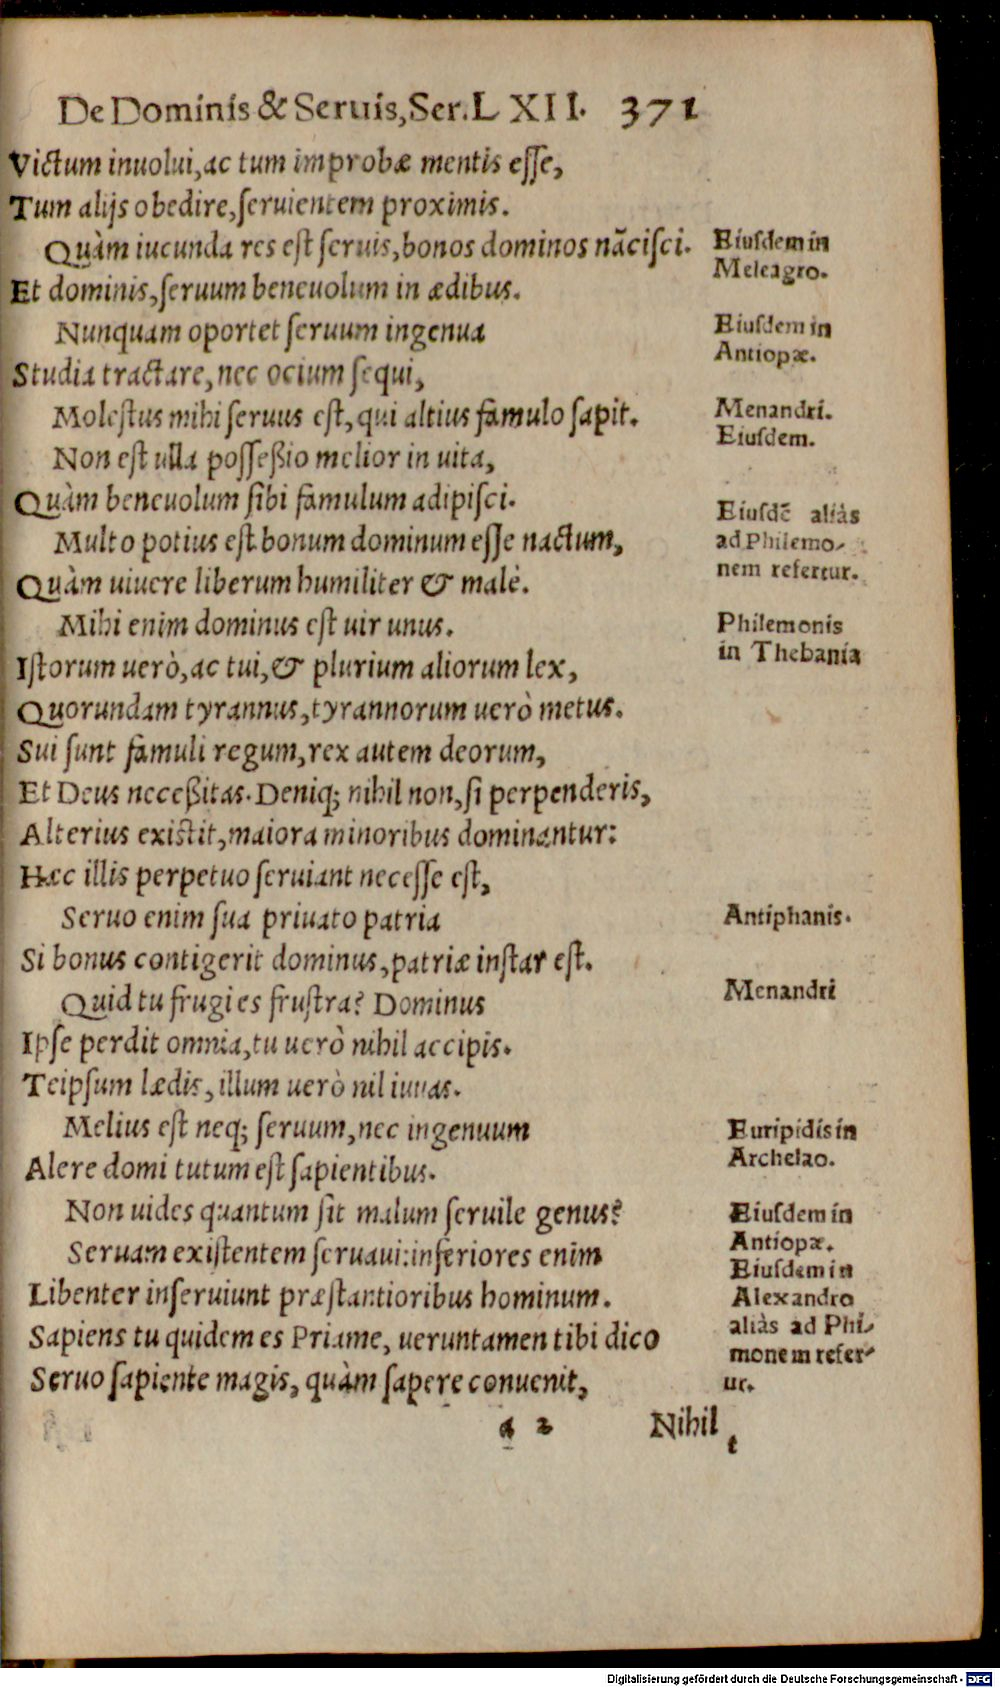 De Dominis & Seruis, Ser. LXII. 371
Victum inuolui, ac tum improbæ mentis esse,
Tum alijs obedire, seruientem proximis.
Quàm iucunda res est seruis, bonos dominos nãcisci.
Eiusdem in
Meleagro.
Et dominis, seruum beneuolum in ædibus.
Nunquam oportet seruum ingenua
Eiusdem in
Antiopæ.
Studia tractare, nec ocium sequi,
Molestus mihi seruus est, qui altius famulo sapit.
Menandri.
Non est ulla possessio melior in uita,
Eiusdem.
Quàm beneuolum sibi famulum adipisci.
Multo potius est bonum dominum esse nactum,
Eiusdẽ aliàs
ad Philemo-
nem refertur.
Quàm uiuere liberum humiliter & malè.
Mihi enim dominus est uir unus.
Philemonis
in Thebania
Istorum uerò, ac tui, & plurium aliorum lex,
Quorundam tyrannus, tyrannorum uerò metus.
Sui sunt famuli regum, rex autem deorum,
Et Deus necessitas. Deniq; nihil non, si perpenderis,
Alterius existit, maiora minoribus dominantur:
Hæc illis perpetuo seruiant necesse est,
Seruo enim sua priuato patria
Antiphanis.
Si bonus contigerit dominus, patriæ instar est.
Quid tu frugi es frustra? Dominus
Menandri
Ipse perdit omnia, tu uerò nihil accipis.
Teipsum lædis, illum uerò nil iuuas.
Melius est neq; seruum, nec ingenuum
Euripidis in
Archelao.
Alere domi tutum est sapientibus.
Non uides quantum sit malum seruile genus?
Eiusdem in
Antiopæ.
Seruam existentem seruaui: inferiores enim
Eiusdem in
Alexandro
aliàs ad Phi-
monem refer-
ur.
Libenter inseruiunt præstantioribus hominum.
Sapiens tu quidem es Priame, ueruntamen tibi dico
Seruo sapiente magis, quàm sapere conuenit,
a 2 Nihil
t
Digitalisierung gefördert durch die Deutsche Forschungsgemeinschaft - DFG